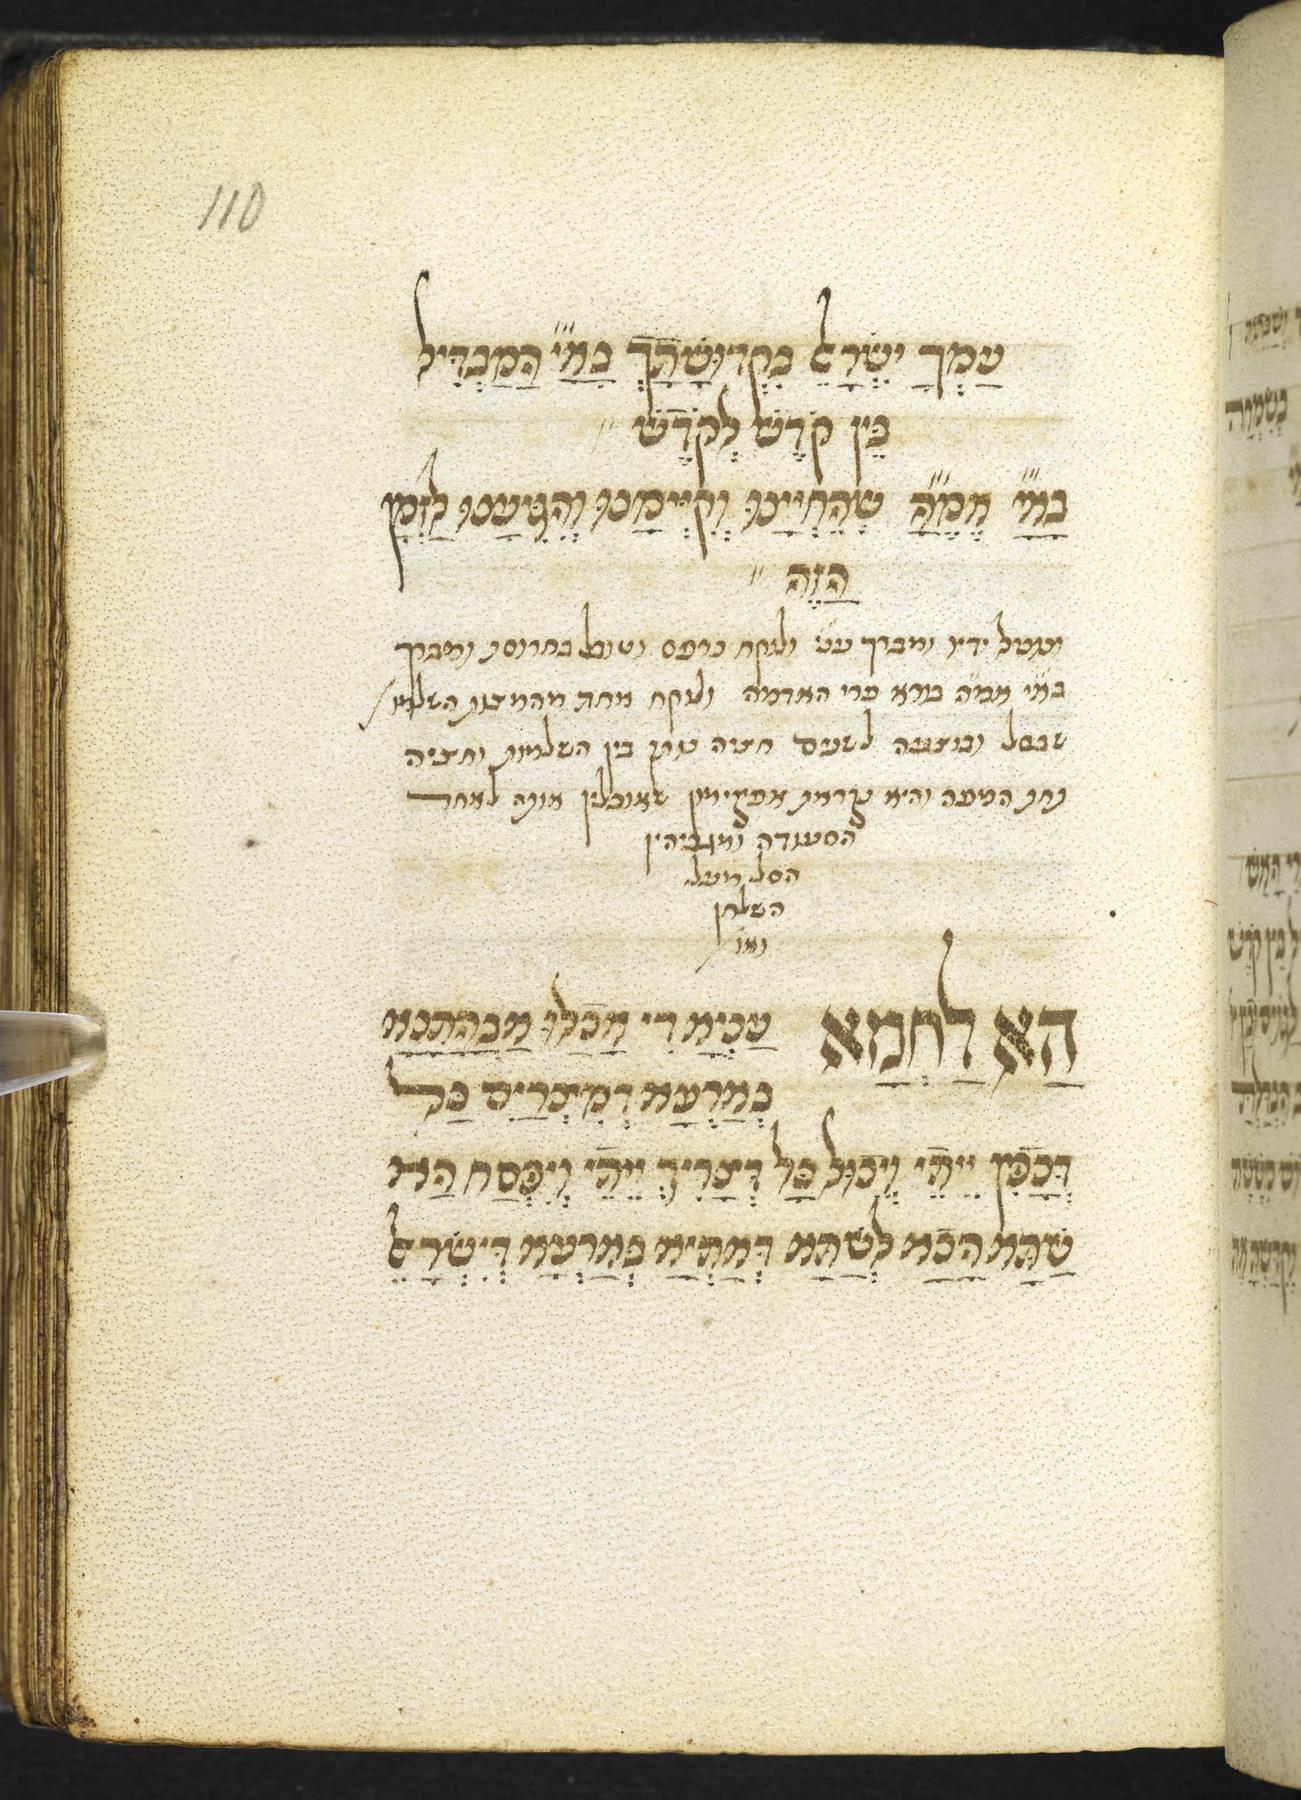 110
עַמְךָ יִשְׂרָאֵל בִקְדוּשָׁתָךְ בַּאיי הַמַבְדִיל
בֵּין קֹדֶשׁ לְקֹדֶשׁ
בַּאיי אֱמֶהָ שֶׁהֶחְיָינוּ וְקִיְימָנוּ וְהִגִיעָנוּ לַזְמָן
הַזֶה
ונוטל ידיו ומברך ולוקח כרפס וטובל בחרוסת ומברך
באיי אמה בורא פרי האדמה ולוקח אחת מהמצות השלמות
שבסל ובוצעה לשנים חציה נותן בין השלמות וחציה
תחת המפה והיא נקראת אפיקומן שאוכלין אותה לאחר
הסעודה ומגביהין
הסל מעל
השלחן
ואו׳
הָא לַחְמָא עַנְיָא דִי אֲכַלוּ אַבְהָתָנָא
בְאַרְעָא דְמִצְרַיִם כַּל
דְכָפִין יֵיתֵי וְיֵכוּל כַּל דְצָרִיךְ יֵיתֵי וְיִפְסַח הַדָא
שַׁתָּא הָכָא לְשַׁתָּא דְאָתְיָא בְאַרְעָא דְיִשְׂרָאֵל